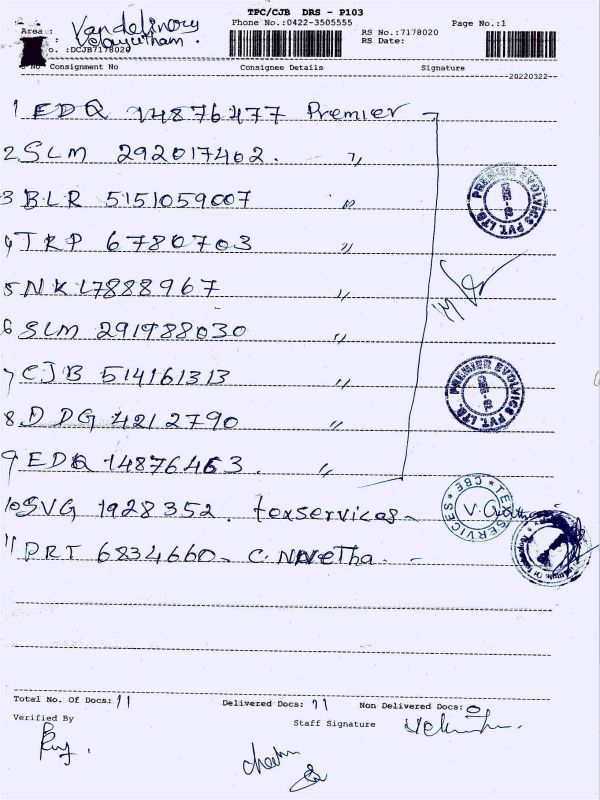 TPC/CJB DRS - P103
Phone No.:0422-3505555
Page No.:1
Area :
Velayutham.
RS No.:7178020
RS Date:
No. :DCJB7178020
S No Consignment No Consignee Details Signature
20220322
1 EDQ 14876477 Premier
2 SLM 292017402. "
3 BLR 5151059007 "
4 TRP 6780703 "
5 NKL 7888967 "
6 SLM 291988030 "
7 CJB 514161313 "
8 DDG 4212790 "
9 EDQ 14876463. "
10 SVG 1928352. texservices
11 PRT 6834660 - C. Nivetha -
PREMIER EVOLVICS PVT. LTD.
PREMIER EVOLVICS PVT. LTD.
TEX SERVICES CBE
Total No. Of Docs: 11 Delivered Docs: 11 Non Delivered Docs: 0
Verified By
Staff Signature